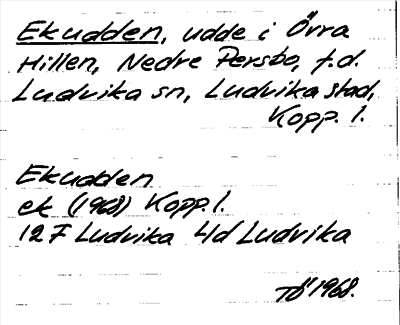 Ekudden, udde i Övra
Hillen, Nedre Persbo, f.d.
Ludvika sn, Ludvika stad,
Kopp. l.
Ekudden
ek (1968) Kopp. l.
12 F Ludvika 4d Ludvika
TÖ 1968.